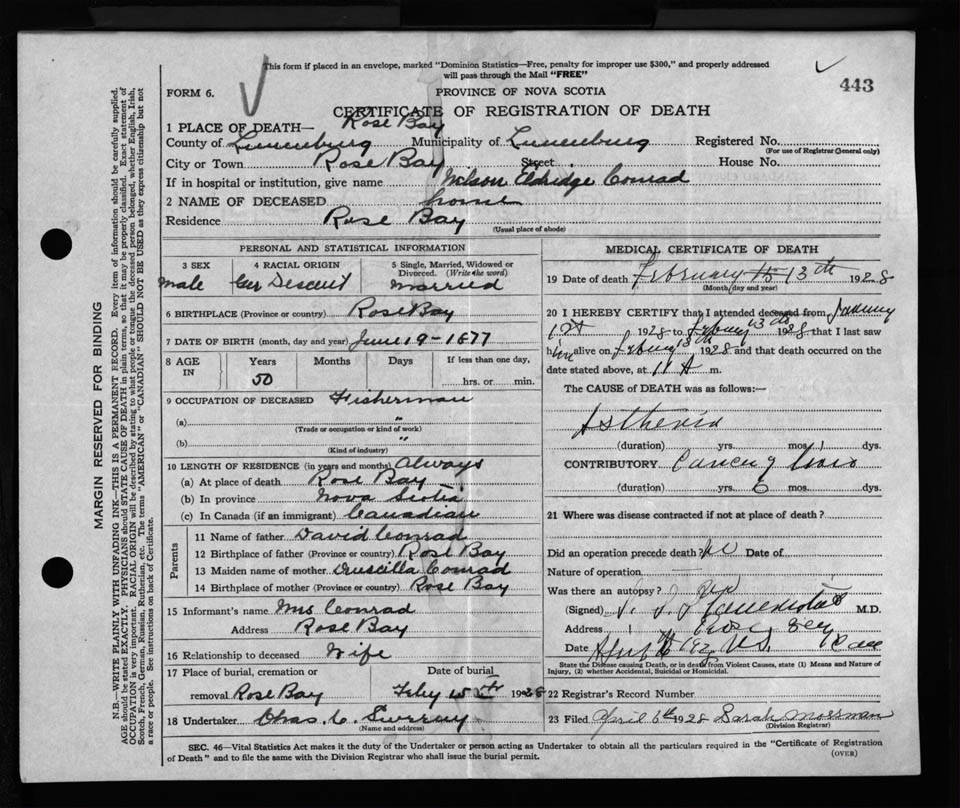 This form if placed in an envelope, marked "Dominion Statistics—Free, penalty for improper use $300," and properly addressed
will pass through the Mail "FREE"
443
FORM 6.
PROVINCE OF NOVA SCOTIA
CERTIFICATE OF REGISTRATION OF DEATH
1 PLACE OF DEATH— Rose Bay
County of Lunenburg Municipality of Lunenburg Registered No.
(For use of Registrar General only)
City or Town Rose Bay Street House No.
If in hospital or institution, give name Wilson Eldridge Conrad
2 NAME OF DECEASED home
Residence Rose Bay
(Usual place of abode)
PERSONAL AND STATISTICAL INFORMATION
3 SEX
Male
4 RACIAL ORIGIN
Ger Descent
5 Single, Married, Widowed or
Divorced. (Write the word)
Married
6 BIRTHPLACE (Province or country) Rose Bay
7 DATE OF BIRTH (month, day and year) June 19-1877
8 AGE IN
Years Months Days If less than one day,
50 hrs. or min.
9 OCCUPATION OF DECEASED Fisherman
(a) "
(Trade or occupation or kind of work)
(b) "
(Kind of industry)
10 LENGTH OF RESIDENCE (in years and months) Always
(a) At place of death Rose Bay
(b) In province Nova Scotia
(c) In Canada (if an immigrant) Canadian
Parents
11 Name of father David Conrad
12 Birthplace of father (Province or country) Rose Bay
13 Maiden name of mother Druscilla Conrad
14 Birthplace of mother (Province or country) Rose Bay
15 Informant's name Mrs Conrad
Address Rose Bay
16 Relationship to deceased Wife
17 Place of burial, cremation or Date of burial
removal Rose Bay Feby 15 1928
18 Undertaker Chas
(Name and address)
MEDICAL CERTIFICATE OF DEATH
19 Date of death February 15 13th 1928
(Month, day and year)
20 I HEREBY CERTIFY that I attended deceased from January
1st 1928 to 13th 1928 that I last saw
him alive on 13th 1928 and that death occurred on the
date stated above, at 11 A m.
The CAUSE of DEATH was as follows:
Asthenia
(duration) yrs. mos. 1 dys.
CONTRIBUTORY Cancer of
(duration) yrs. 6 mos. dys.
21 Where was disease contracted if not at place of death?
Did an operation precede death? Date of
Nature of operation —
Was there an autopsy? No
(Signed) M.D.
Address Rose Bay
Date
State the Disease causing Death, or in death from Violent Causes, state (1) Means and Nature of
Injury, (2) whether Accidental, Suicidal or Homicidal.
22 Registrar's Record Number
23 Filed April 6th 1928 Sarah Mossman
(Division Registrar)
SEC. 46—Vital Statistics Act makes it the duty of the Undertaker or person acting as Undertaker to obtain all the particulars required in the "Certificate of Registration
of Death" and to file the same with the Division Registrar who shall issue the burial permit. (OVER)
MARGIN RESERVED FOR BINDING
N.B.—WRITE PLAINLY WITH UNFADING INK—THIS IS A PERMANENT RECORD. Every item of information should be carefully supplied.
AGE should be stated EXACTLY. PHYSICIANS should STATE CAUSE OF DEATH in plain terms, so that it may be properly classified. Exact statement of
OCCUPATION is very important. RACIAL ORIGIN will be described by stating to what people or tongue the deceased person belonged, whether English, Irish,
Scotch, French, German, Russian, Ruthenian, etc. The terms "AMERICAN" or "CANADIAN" SHOULD NOT BE USED as they express citizenship but not
a race or people. See instructions on back of Certificate.